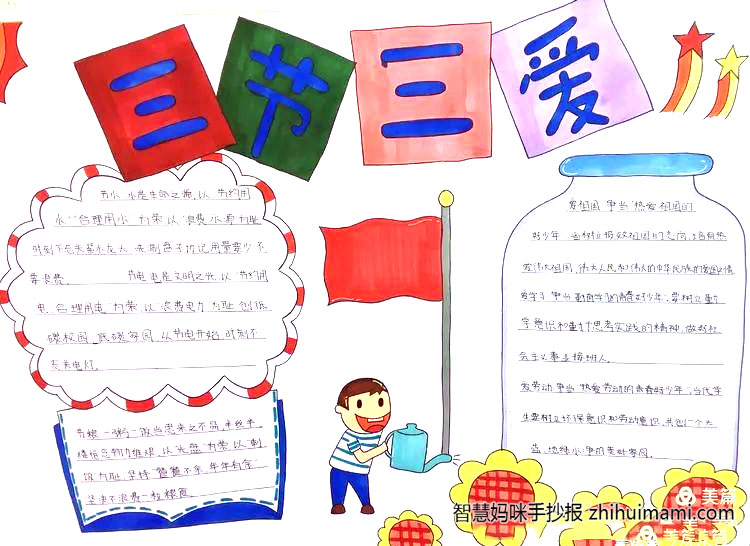 三节三爱
节水 水是生命之源，以"节约用
水""合理用水"为荣，以"浪费水源"为耻
时刻不忘关紧水龙头，洗刷盘子切记用量要少不
要浪费。 节电 电是文明之光，以"节约用
电，合理用电"为荣，以"浪费电力"为耻 创低
碳校园，低碳家园，从节电开始，时刻不
忘关电灯。
节粮 一粥一饭当思来之不易，半丝半
缕恒念物力维艰，以"光盘"为荣，以"剩
饭"为耻，坚持"餐餐不余，年年有余"
坚决不浪费一粒粮食
爱祖国 争当"热爱祖国的
好少年" 树立报效祖国的志向，培育热
爱伟大祖国，伟大人民和伟大的中华民族的爱国情
爱学习 争当"勤奋学习的青春好少年"，要树立勤
学意识和勤于思考实践的精神，做好社
会主义事业接班人。
爱劳动 争当"热爱劳动的青春好少年"，当代学
生要树立环保意识和劳动意识，共创一个大
地绿 净的美好家园。
智慧妈咪手抄报 zhihuimami.com
美篇
美篇